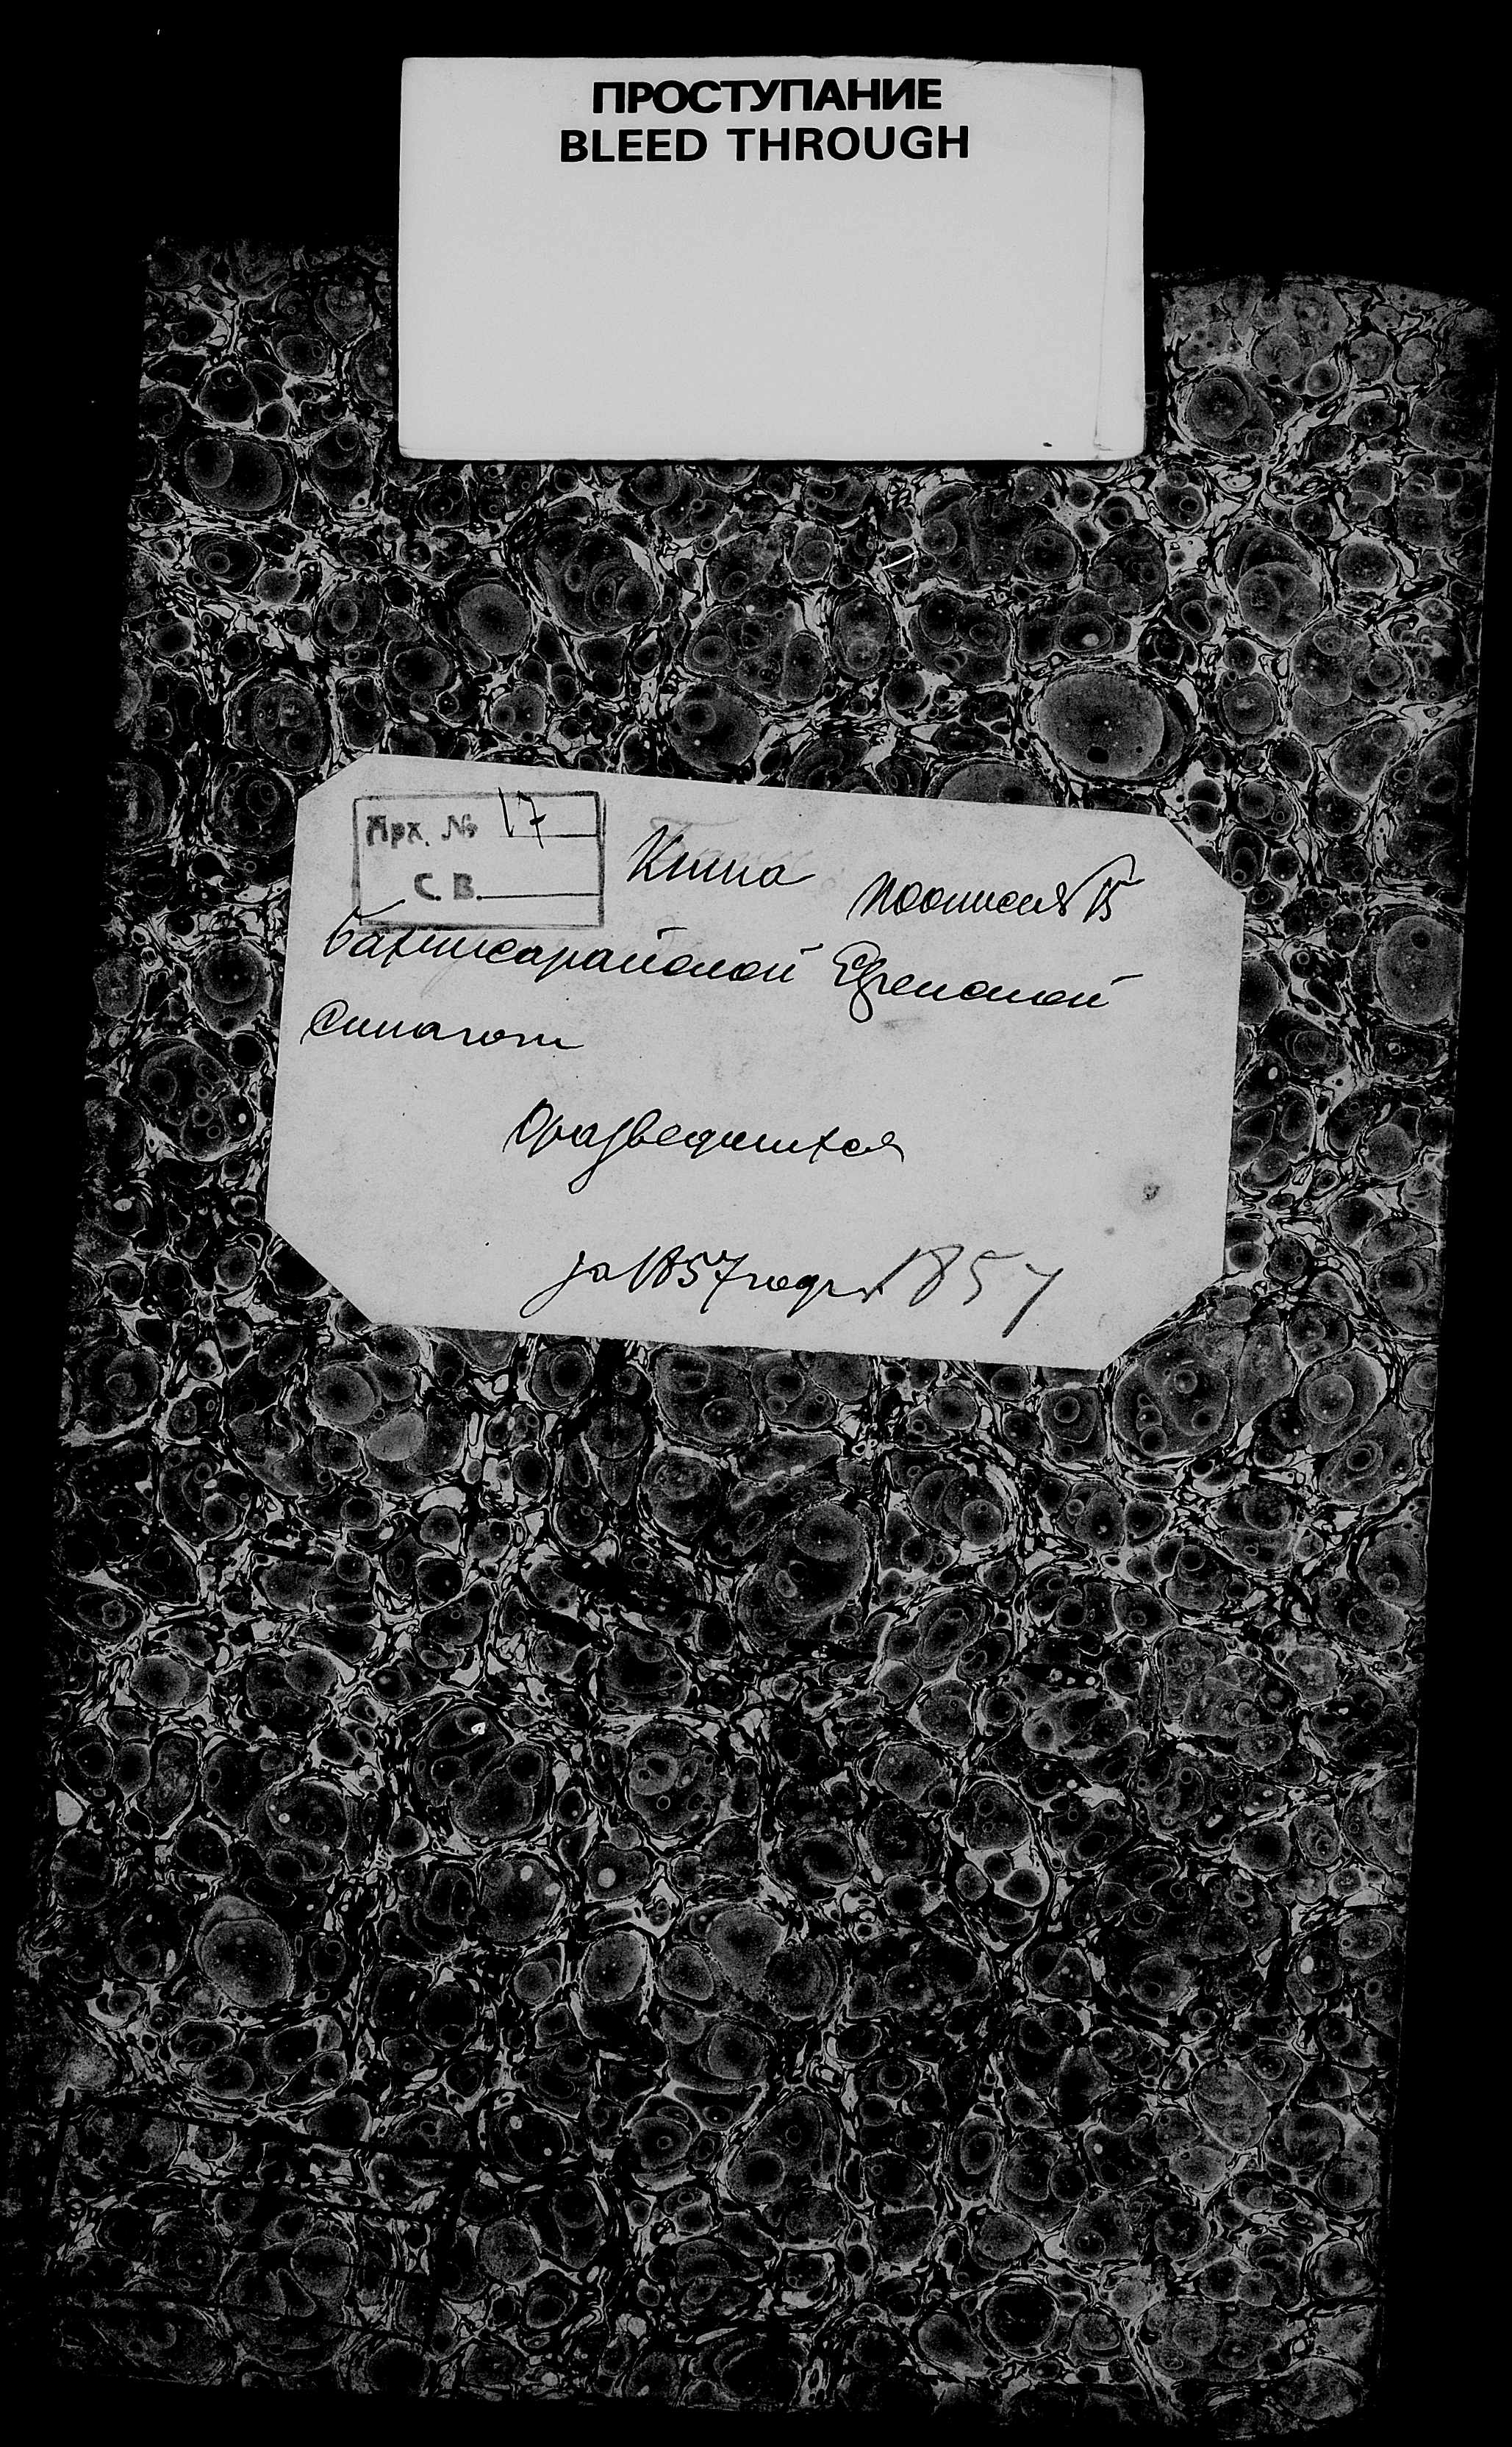 ПРОСТУПАНИЕ
BLEED THROUGH
Арх. № 17
С. В.
Книга
Бахчисарайской Еврейской
Синагоги
О разведшихся
за 1857 годъ 1857